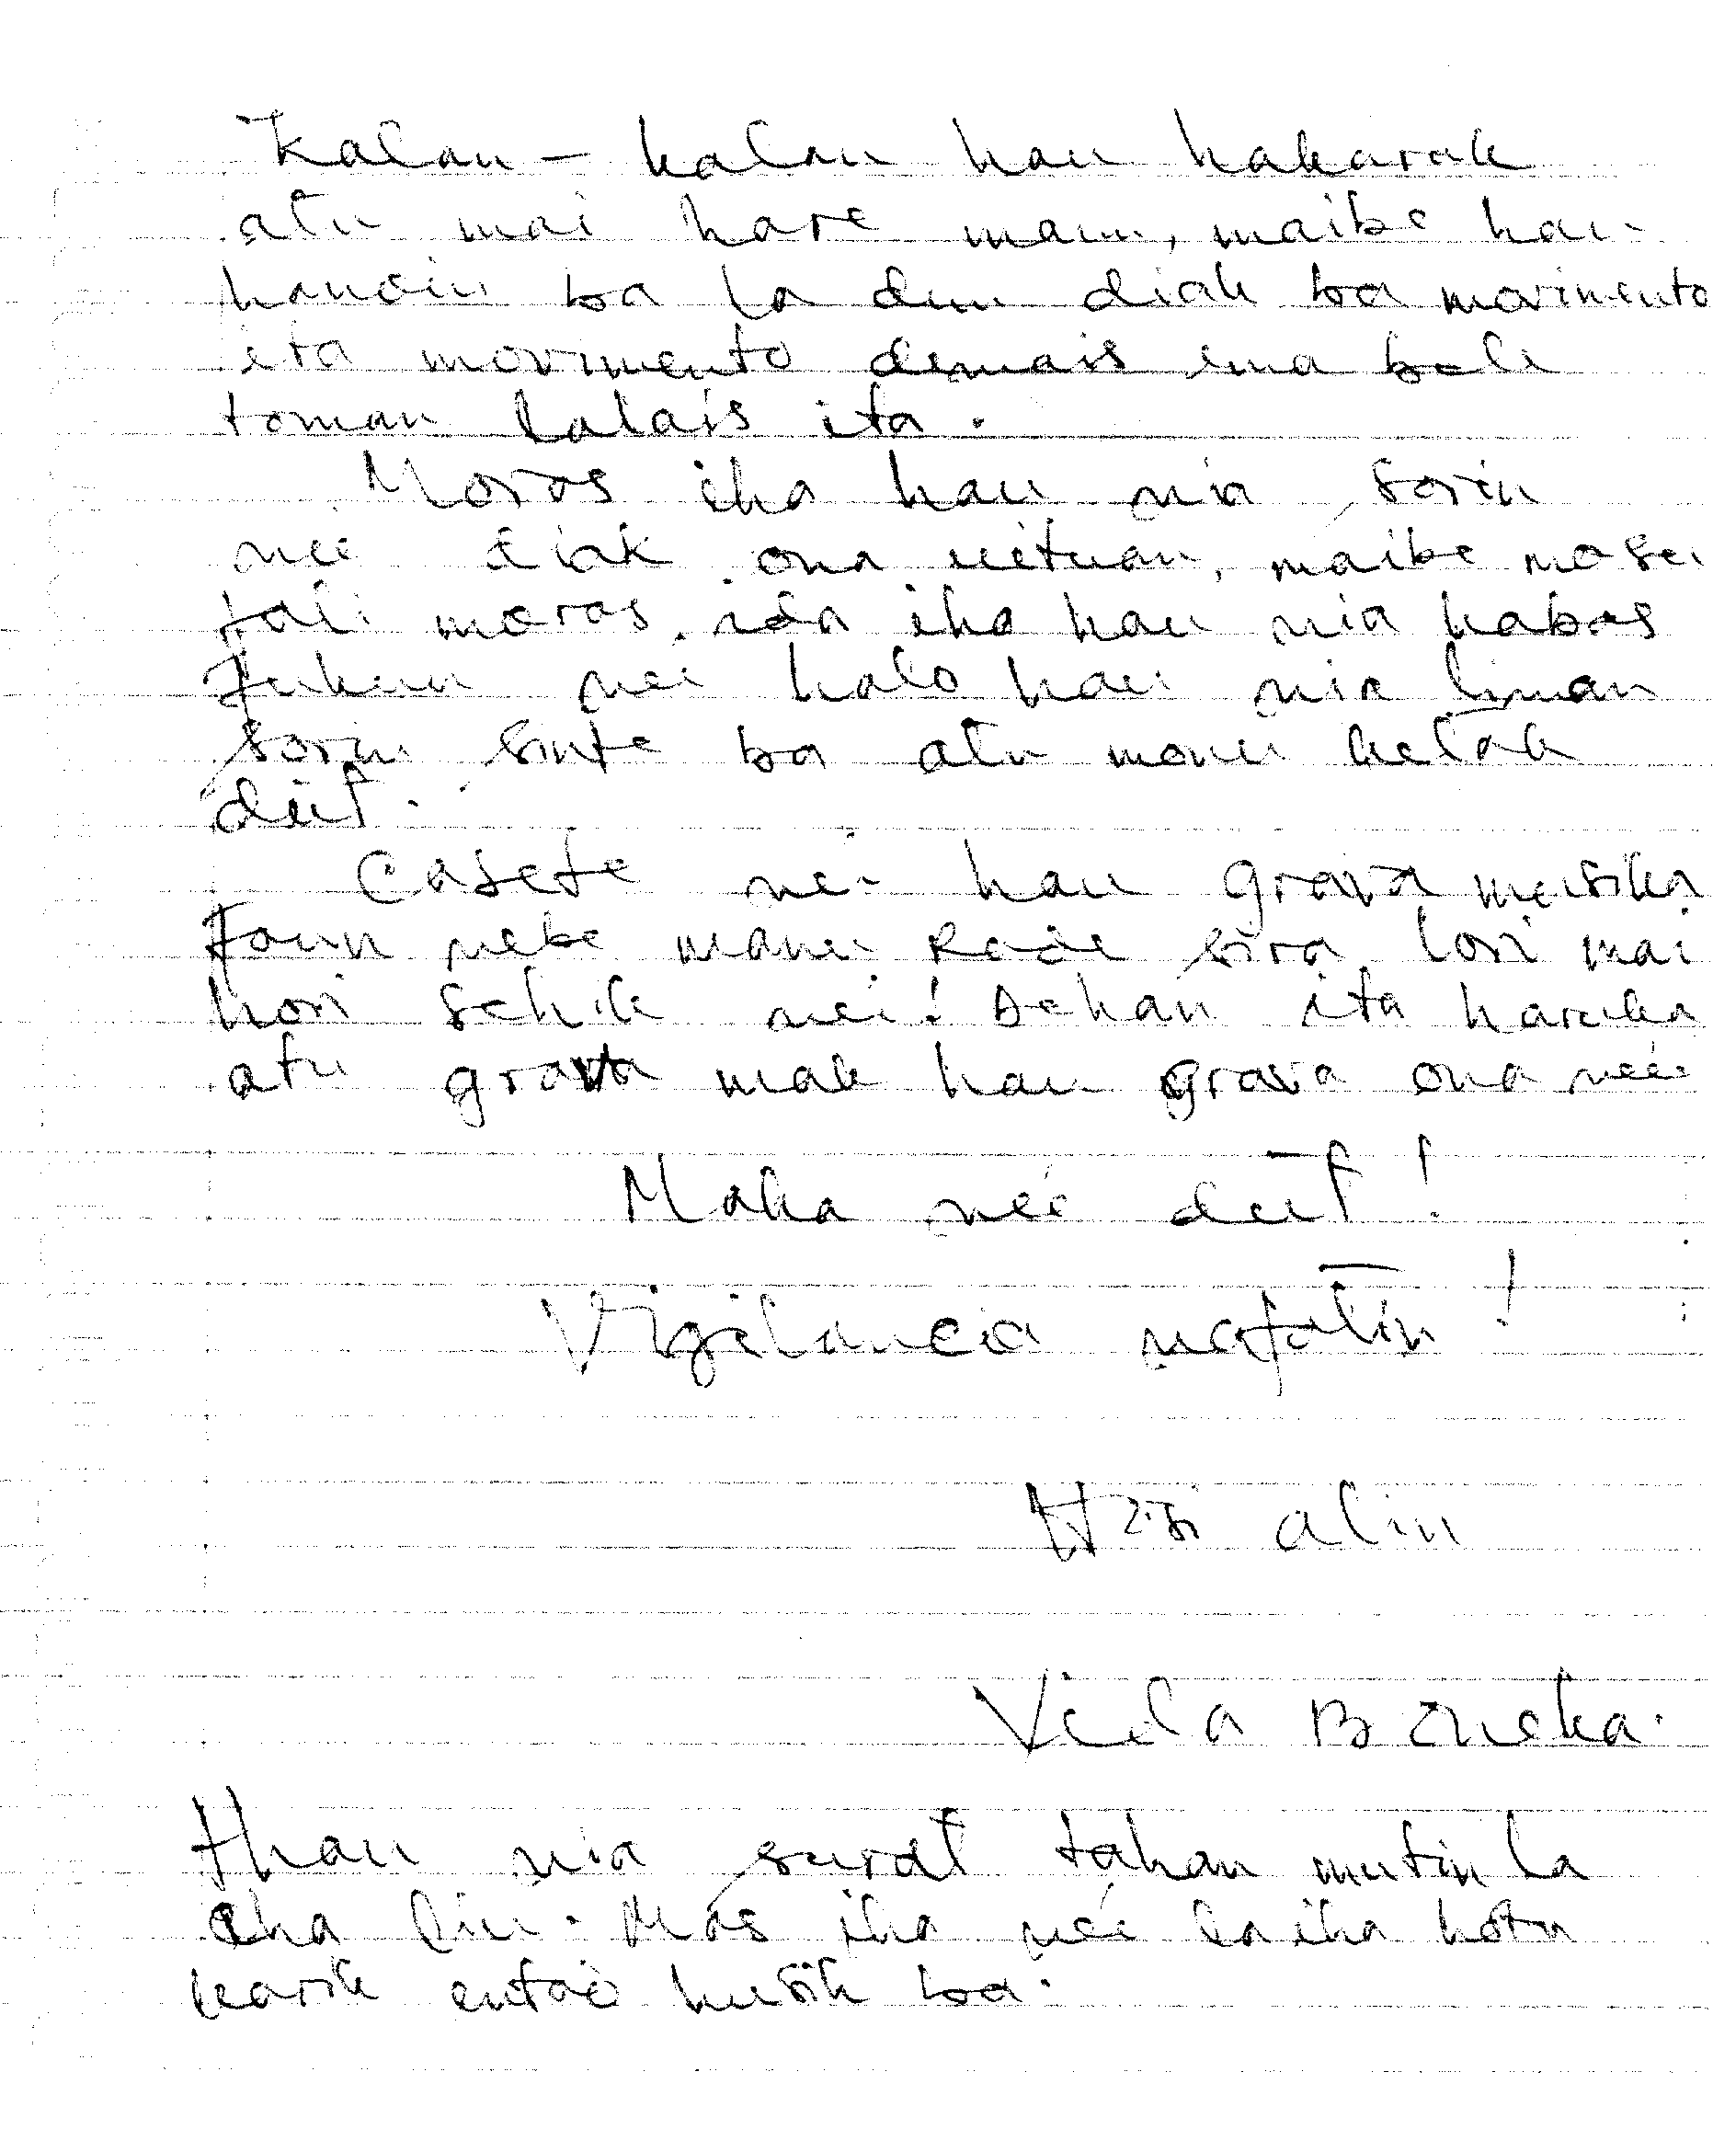 Kalan - kalan hau hakarak
atu mai hare maun, maibe hau
hanoin ba la dun diak ba movimento
ita movimento demais ema bele
toman lalais ita.
Moras iha hau nia sorin
nee diak ona uituan, maibe mosu
fali moras ida iha hau nia kabas
fukun nee halo hau nia liman
sorin sinte ba atu monu ketak
deit.
Casete nee hau grava musika
foun nebe manu Rade sira lori mai
hori sehik nee! Dehan ita haruka
atu grava mak hau grava ona nee
Maka neé deit!
Vigilancia nafatin!
Hosi alin
Vida Boneka.
Hau nia surat tahan mutin la
iha liu. Mas iha neé laiha hotu
karik entaõ husik ba.